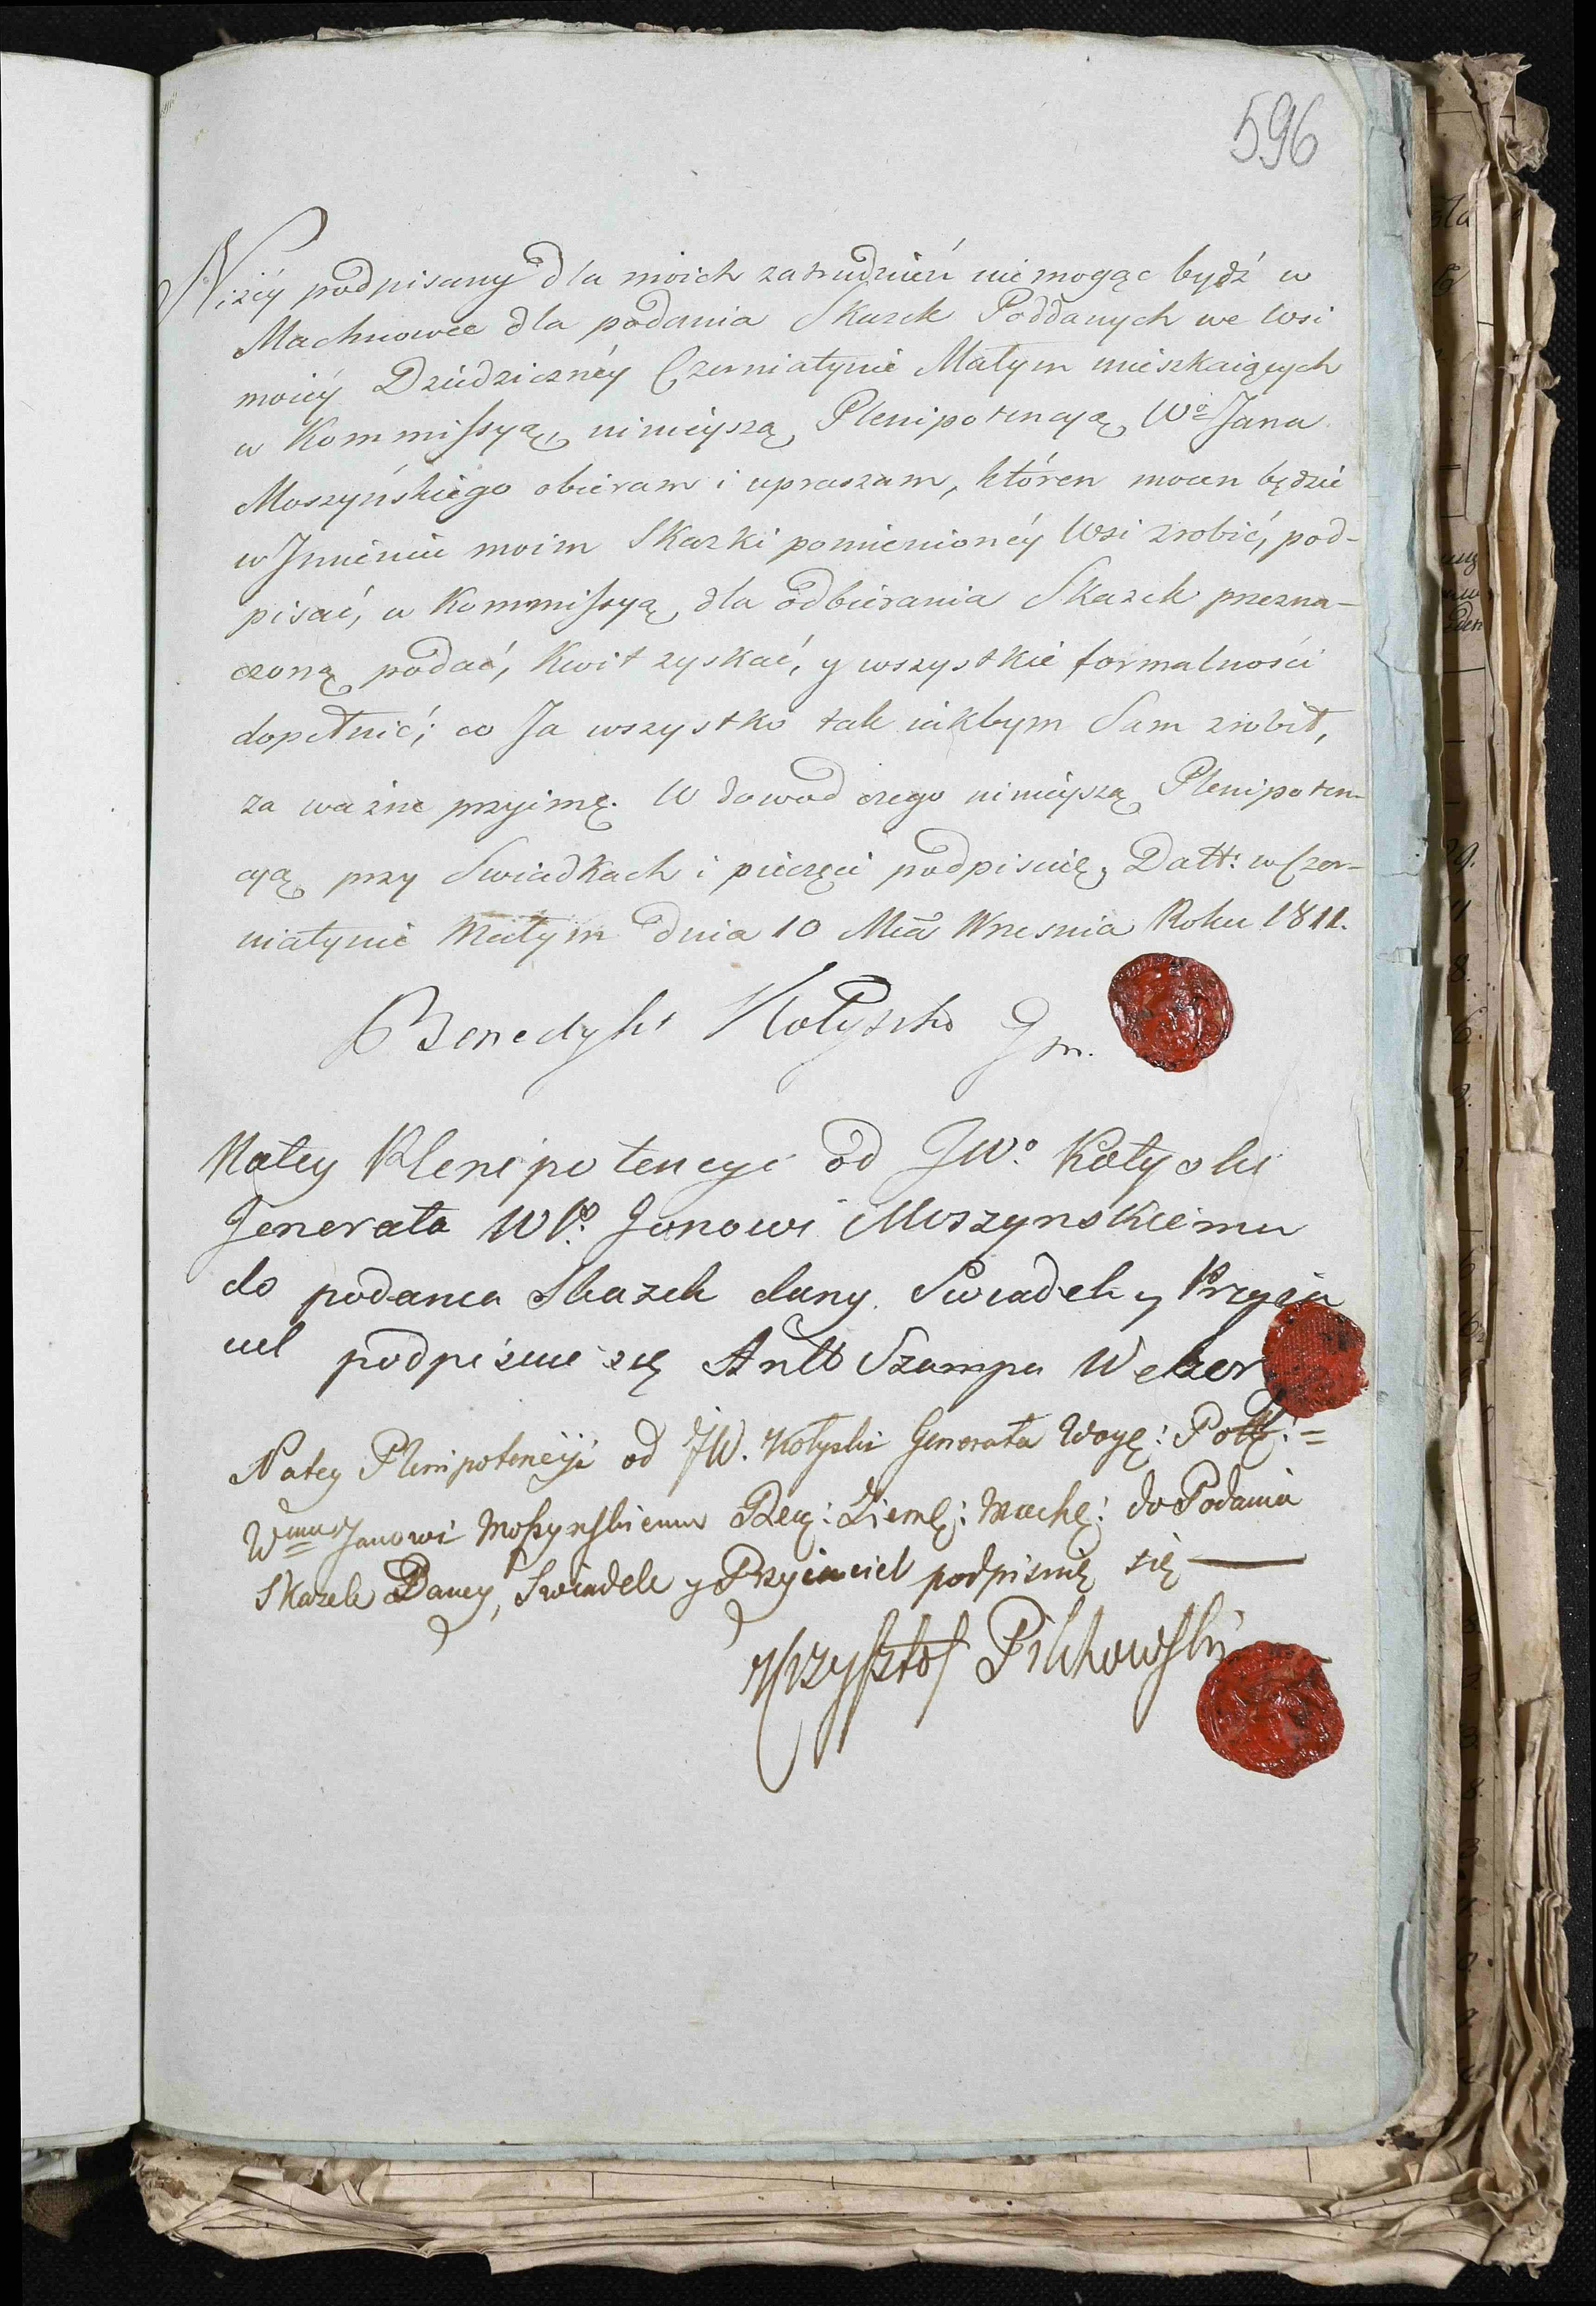 596
Niżéy podpisany dla moich zatrudnień nie mogąc bydź w
Machnowce dla podania Skazek Poddanych we Wsi
moiéy Dziedzicznéy Czerniatynie Małym mieszkaiących
w Kommissyą, ninieyszą Plenipotencyą Wo Jana
Moszyńskiego obieram i upraszam, któren mocen będzie
w Jmieniu moim Skazki pomienionéy Wsi zrobić, pod-
pisać, w Kommissyą dla odbierania Skazek przezna-
czoną podać, Kwit zyskać, y wszystkie formalności
dopełnić; co Ja wszystko tak iakbym Sam zrobił,
za ważne przyimę. W dowod czego ninieyszą Plenipoten-
cyą przy Swiadkach i pieczęci podpisuię, Datt: w Czer-
niatynie Małym dnia 10 Mca Wrzesnia Roku 1811.
Benedykt Kołyszko Gm.
Natey Plenipotencyi od JWo Kołyski
Jenerała WP. Janowi Moszynskiemu
do podania Skazek dany Swiadek y Przyia
ciel podpisuie się Antt Szampa Weker
Natey Plenipotencyi od JW. Kołyski Generała Woyę: Polł: =
Wmu Janowi Moszynskiemu Reę: Ziemę: Machę: do Podania
Skazek Daney, Swiadek y Przyiaciel podpisuię się —
Krzysztof Pilchowski